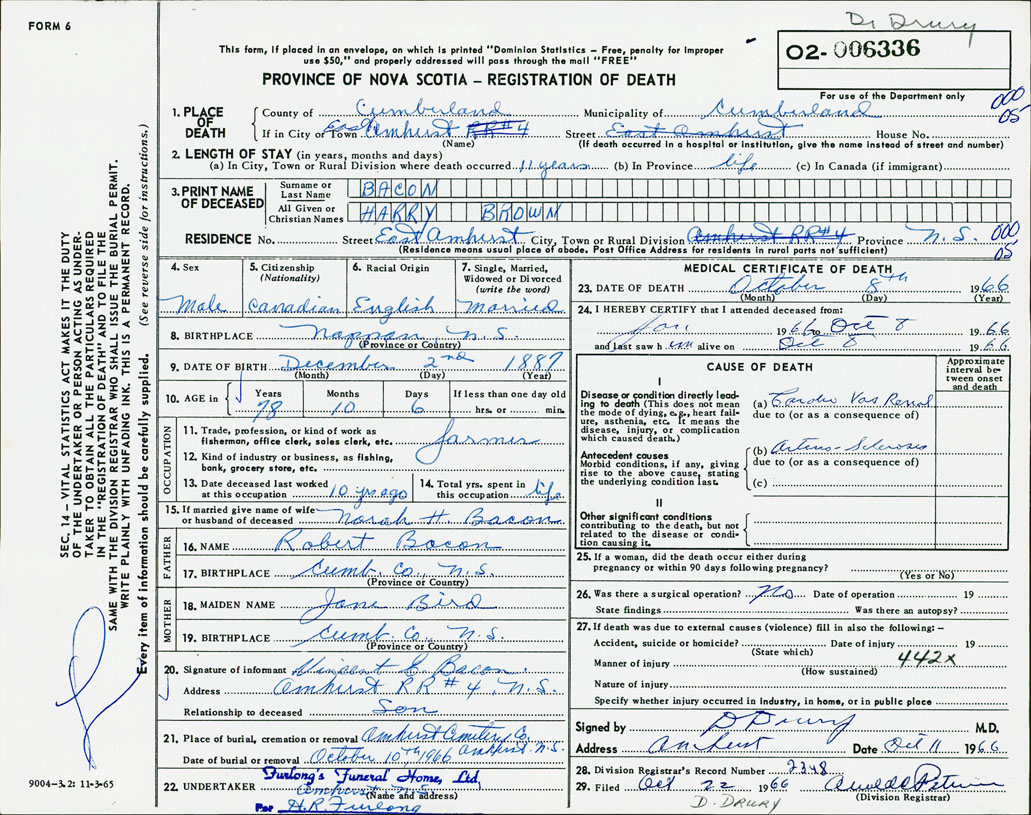 Dr Drury
FORM 6
This form, if placed in an envelope, on which is printed "Dominion Statistics – Free, penalty for improper
use $50," and properly addressed will pass through the mail "FREE"
02-006336
PROVINCE OF NOVA SCOTIA – REGISTRATION OF DEATH
For use of the Department only
000
05
1. PLACE OF DEATH
County of Cumberland Municipality of Cumberland
If in City or Town East Amherst RR#4 Street East Amherst House No.
(Name) (If death occurred in a hospital or institution, give the name instead of street and number)
2. LENGTH OF STAY (in years, months and days)
(a) In City, Town or Rural Division where death occurred 11 years (b) In Province life (c) In Canada (if immigrant)
3. PRINT NAME OF DECEASED
Surname or Last Name BACON
All Given or Christian Names HARRY BROWN
RESIDENCE No. Street East Amherst City, Town or Rural Division Amherst RR#4 Province N.S.
000
05
(Residence means usual place of abode. Post Office Address for residents in rural parts not sufficient)
4. Sex Male
5. Citizenship (Nationality) Canadian
6. Racial Origin English
7. Single, Married, Widowed or Divorced (write the word) Married
8. BIRTHPLACE Nappan N.S.
(Province or Country)
9. DATE OF BIRTH December 2nd 1887
(Month) (Day) (Year)
10. AGE in Years Months Days If less than one day old
78 10 6 hrs. or min.
OCCUPATION
11. Trade, profession, or kind of work as
fisherman, office clerk, sales clerk, etc. farmer
12. Kind of industry or business, as fishing,
bank, grocery store, etc.
13. Date deceased last worked at this occupation 10 yrs ago
14. Total yrs. spent in this occupation life
15. If married give name of wife or husband of deceased Norah H. Bacon
FATHER
16. NAME Robert Bacon
17. BIRTHPLACE Cumb. Co., N.S.
(Province or Country)
MOTHER
18. MAIDEN NAME Jane Bird
19. BIRTHPLACE Cumb. Co., N.S.
(Province or Country)
20. Signature of informant Vincent E. Bacon.
Address Amherst RR#4, N.S.
Relationship to deceased Son
21. Place of burial, cremation or removal Amherst Cemetery Co.
Amherst N.S.
Date of burial or removal October 10th 1966
22. UNDERTAKER Furlong's Funeral Home, Ltd,
Amherst N.S.
(Name and address)
Per H.R. Furlong
MEDICAL CERTIFICATE OF DEATH
23. DATE OF DEATH October 8th 1966
(Month) (Day) (Year)
24. I HEREBY CERTIFY that I attended deceased from:
Jan 1966 to Oct 8 1966
and last saw him alive on Oct 8 1966
CAUSE OF DEATH
Approximate interval between onset and death
I
Disease or condition directly leading to death (This does not mean
the mode of dying, e.g., heart failure, asthenia, etc. It means the
disease, injury, or complication
which caused death.)
(a) Cardio Vas Renal
due to (or as a consequence of)
Antecedent causes
Morbid conditions, if any, giving
rise to the above cause, stating
the underlying condition last.
(b) Arterio-Sclerosis
due to (or as a consequence of)
(c)
II
Other significant conditions
contributing to the death, but not
related to the disease or condition causing it.
25. If a woman, did the death occur either during
pregnancy or within 90 days following pregnancy?
(Yes or No)
26. Was there a surgical operation? No Date of operation 19
State findings Was there an autopsy?
27. If death was due to external causes (violence) fill in also the following: –
Accident, suicide or homicide? Date of injury 19
(State which)
Manner of injury 442x
(How sustained)
Nature of injury
Specify whether injury occurred in industry, in home, or in public place
Signed by D Drury M.D.
Address Amherst Date Oct 11 1966
28. Division Registrar's Record Number 2348
29. Filed Oct 22 1966
(Division Registrar)
D. DRURY
SEC. 14 – VITAL STATISTICS ACT MAKES IT THE DUTY
OF THE UNDERTAKER OR PERSON ACTING AS UNDER-
TAKER TO OBTAIN ALL THE PARTICULARS REQUIRED
IN THE "REGISTRATION OF DEATH" AND TO FILE THE
SAME WITH THE DIVISION REGISTRAR WHO SHALL ISSUE THE BURIAL PERMIT.
WRITE PLAINLY WITH UNFADING INK. THIS IS A PERMANENT RECORD.
Every item of information should be carefully supplied. (See reverse side for instructions.)
9004-3.2: 11-3-65